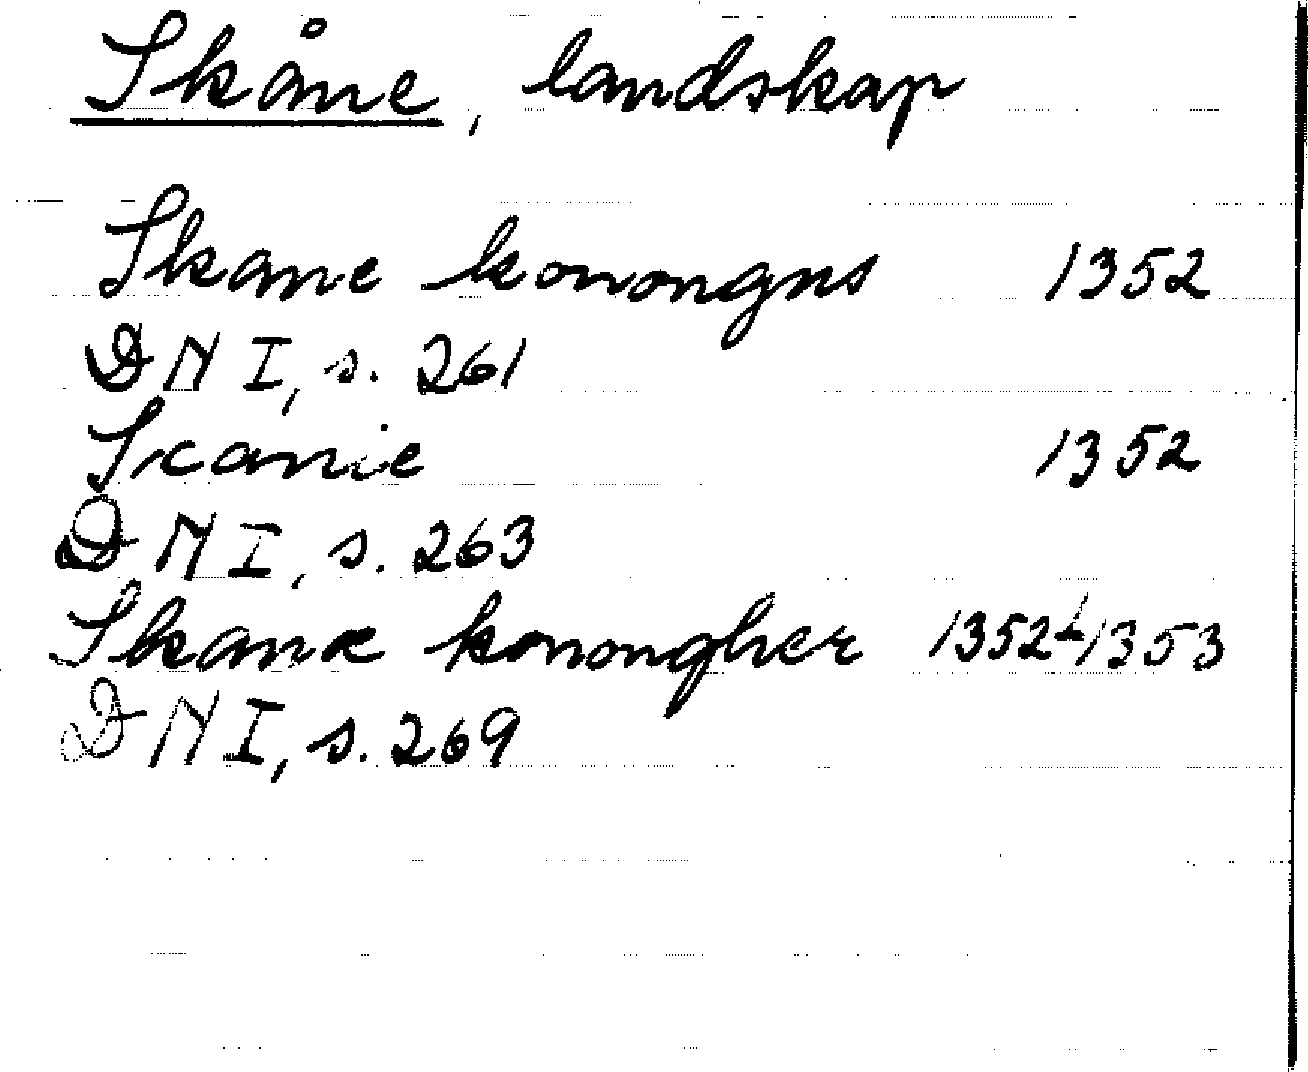 Skåne, landskap
Skane konongns 1352
DN I, s. 261
Scanie 1352
DN I, s. 263
Skanæ konongher 1352-1353
DN I, s. 269